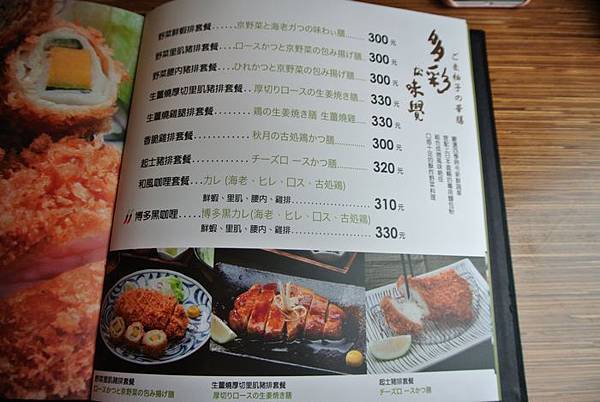 多彩な味覺
ごま柚子の華膳
野菜鮮蝦排套餐....京野菜と海老ガつの味わい膳..... 300元
野菜里肌豬排套餐...ロースかつと京野菜の包み揚げ膳.. 300元
野菜腰內豬排套餐...ひれかつと京野菜の包み揚げ膳... 300元
生薑燒厚切里肌豬排套餐..厚切りロースの生姜焼き膳... 330元
生薑燒雞腿排套餐........鶏の生姜焼き膳 生薑燒雞.... 330元
香脆雞排套餐...........秋月の古処鶏かつ膳........... 300元
起士豬排套餐...........チーズロ ースかつ膳.......... 320元
和風咖哩套餐.....カレ (海老、ヒレ、口ス、古処鶏)
鮮蝦、里肌、腰內、雞排.............. 310元
博多黑咖哩.....博多黒カレ(海老、ヒレ、口ス、古処鶏)
鮮蝦、里肌、腰內、雞排............. 330元
野菜里肌豬排套餐
ロースかつと京野菜の包み揚げ膳
生薑燒厚切里肌豬排套餐
厚切りロースの生姜焼き膳
起士豬排套餐
チーズロ ースかつ膳